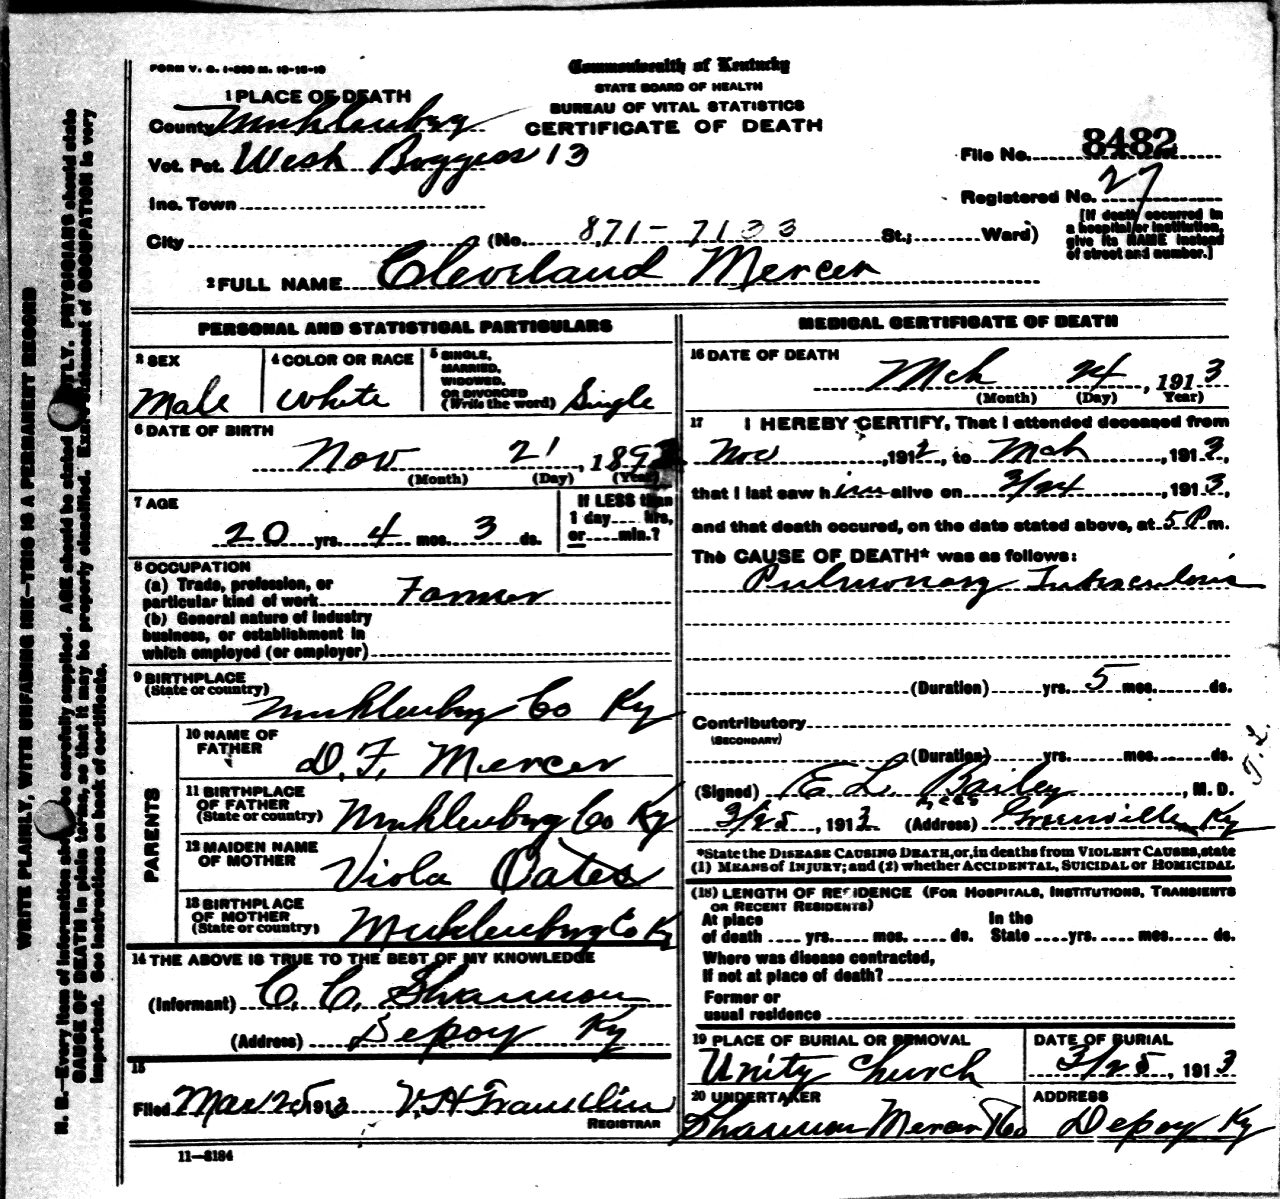 FORM V. S. 1-500 M. 10-15-10
Commonwealth of Kentucky
STATE BOARD OF HEALTH
BUREAU OF VITAL STATISTICS
CERTIFICATE OF DEATH
1 PLACE OF DEATH
County Muhlenburg
Vot. Pct. West Boggess 13
Inc. Town
City (No. 871-7133 St.; Ward)
File No. 8482
Registered No. 27
[If death occurred in
a hospital or institution,
give its NAME instead
of street and number.]
2 FULL NAME Cleveland Mercer
PERSONAL AND STATISTICAL PARTICULARS
3 SEX
Male
4 COLOR OR RACE
White
5 SINGLE,
MARRIED,
WIDOWED,
OR DIVORCED
(Write the word) Single
6 DATE OF BIRTH
Nov 21, 189
(Month) (Day) (Year)
7 AGE
20 yrs. 4 mos. 3 ds.
If LESS than
1 day hrs,
or min.?
8 OCCUPATION
(a) Trade, profession, or
particular kind of work Farmer
(b) General nature of industry
business, or establishment in
which employed (or employer)
9 BIRTHPLACE
(State or country)
Muhlenburg Co Ky
PARENTS
10 NAME OF
FATHER
D. F. Mercer
11 BIRTHPLACE
OF FATHER
(State or country) Muhlenburg Co Ky
12 MAIDEN NAME
OF MOTHER
Viola Oates
13 BIRTHPLACE
OF MOTHER
(State or country) Muhlenburg Co Ky
14 THE ABOVE IS TRUE TO THE BEST OF MY KNOWLEDGE
(Informant) C. C. Shannon
(Address) Depoy Ky
15
Filed Mar 25 1913 V. H. Franklin
REGISTRAR
11—8184
MEDICAL CERTIFICATE OF DEATH
16 DATE OF DEATH
Mch 24, 1913
(Month) (Day) Year)
17 I HEREBY CERTIFY, That I attended deceased from
Nov, 1912, to Mch, 1913,
that I last saw him alive on 3/24, 1913,
and that death occured, on the date stated above, at 5 P m.
The CAUSE OF DEATH* was as follows:
Pulmonary Tuberculosis
(Duration) yrs. 5 mos. ds.
Contributory
(SECONDARY)
(Duration) yrs. mos. ds.
(Signed) E L. Bailey, M. D.
3/25, 1913 (Address) Greenville Ky
T. L.
*State the DISEASE CAUSING DEATH, or, in deaths from VIOLENT CAUSES, state
(1) MEANS of INJURY; and (2) whether ACCIDENTAL, SUICIDAL or HOMICIDAL
(18) LENGTH OF RESIDENCE (FOR HOSPITALS, INSTITUTIONS, TRANSIENTS
OR RECENT RESIDENTS)
At place
of death yrs. mos. ds.
In the
State yrs. mos. ds.
Where was disease contracted,
If not at place of death?
Former or
usual residence
19 PLACE OF BURIAL OR REMOVAL
Unity Church
DATE OF BURIAL
3/25, 1913
20 UNDERTAKER
Shannon Mercer & Co
ADDRESS
Depoy Ky
WRITE PLAINLY, WITH UNFADING INK—THIS IS A PERMANENT RECORD
N. B.—Every item of information should be carefully supplied. AGE should be stated EXACTLY. PHYSICIANS should state
CAUSE OF DEATH in plain terms, so that it may be properly classified. Exact statement of OCCUPATION is very
important. See instructions on back of certificate.